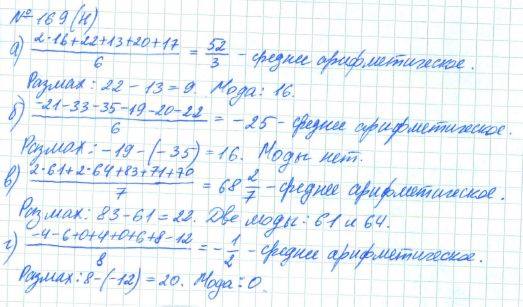 № 169 (н)
а) (2·16+22+13+20+17)/6 = 52/3 - среднее арифметическое.
Размах: 22 - 13 = 9. Мода: 16.
б) (-21-33-35-19-20-22)/6 = -25 - среднее арифметическое.
Размах: -19 - (-35) = 16. Моды нет.
в) (2·61+2·64+83+71+70)/7 = 68 2/7 - среднее арифметическое.
Размах: 83-61 = 22. Две моды: 61 и 64.
г) (-4-6+0+4+0+6+8-12)/8 = -1/2 - среднее арифметическое.
Размах: 8-(-12) = 20. Мода: 0.